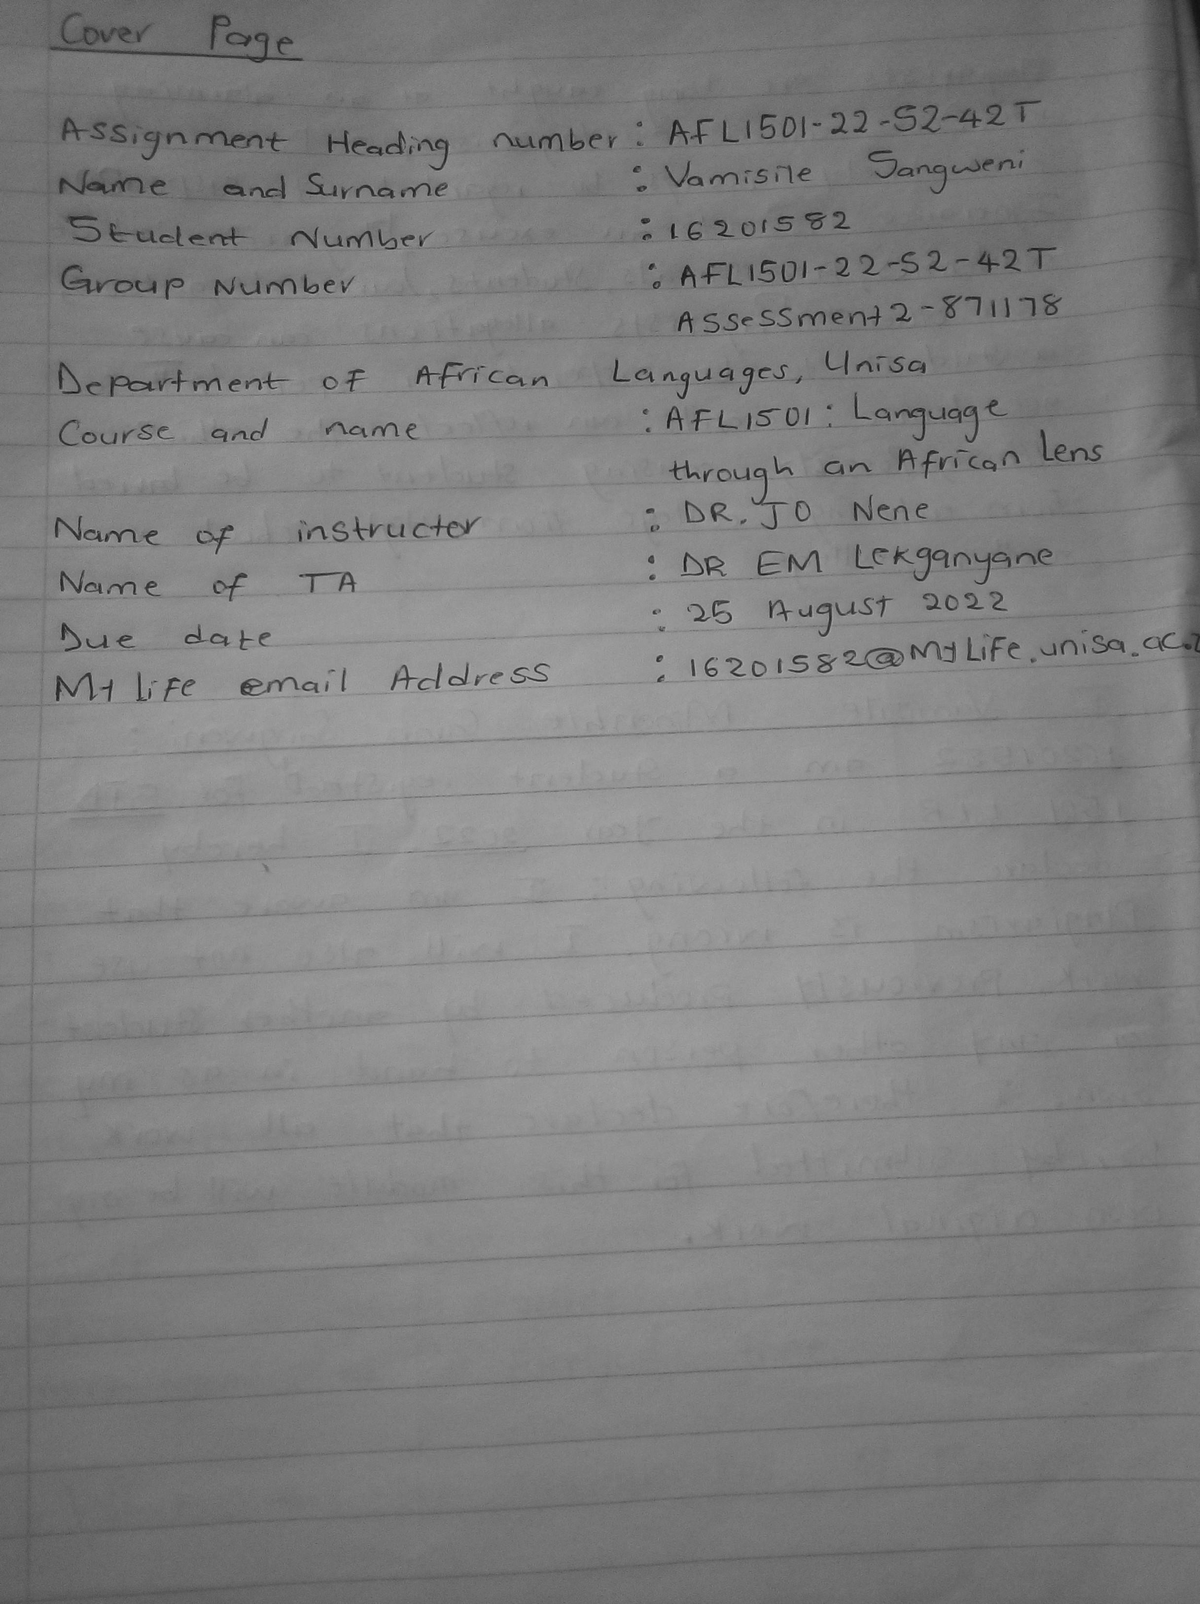 Cover Page
Assignment Heading number : AFL1501-22-S2-42T
Name and Surname : Vamisile Sangweni
Student Number : 16201582
Group Number : AFL1501-22-S2-42T
Assessment 2-871178
Department of African Languages, Unisa
Course and name : AFL1501: Language
through an African Lens
Name of instructer : DR. JO Nene
Name of TA : DR EM Lekganyane
Due date : 25 August 2022
My life email Address : 16201582@MyLife.unisa.ac.z